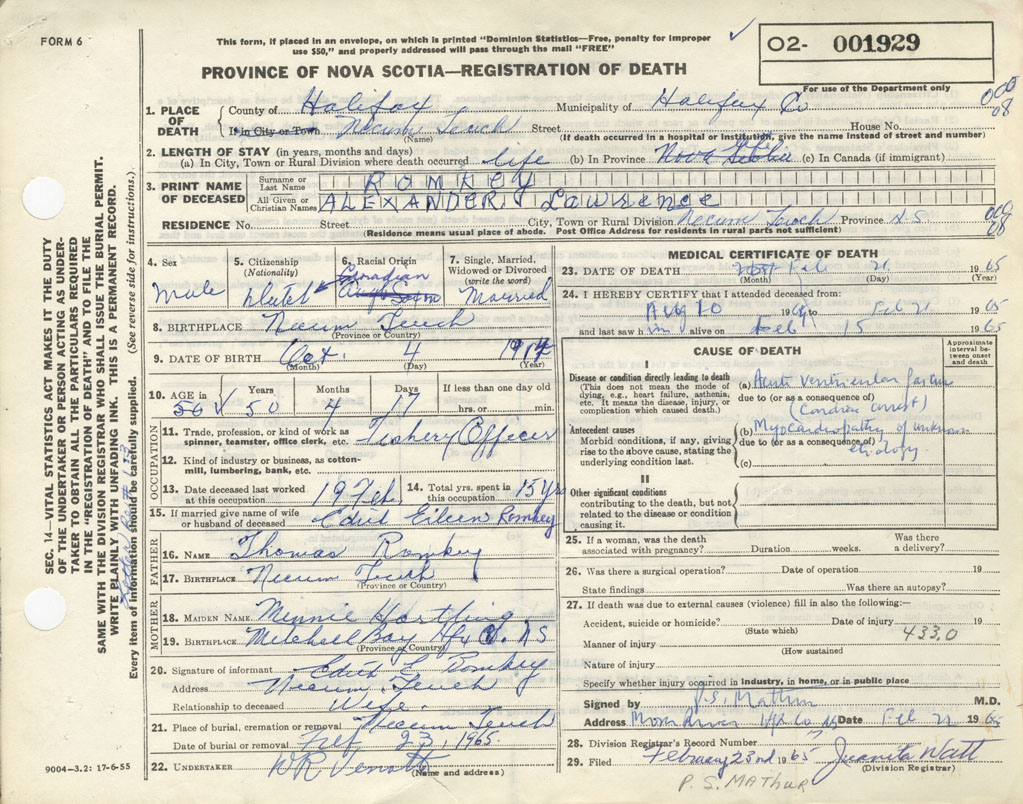 FORM 6
This form, if placed in an envelope, on which is printed "Dominion Statistics—Free, penalty for improper
use $50," and properly addressed will pass through the mail "FREE"
O2- 001929
For use of the Department only
PROVINCE OF NOVA SCOTIA—REGISTRATION OF DEATH
SEC. 14—VITAL STATISTICS ACT MAKES IT THE DUTY
OF THE UNDERTAKER OR PERSON ACTING AS UNDER-
TAKER TO OBTAIN ALL THE PARTICULARS REQUIRED
IN THE "REGISTRATION OF DEATH" AND TO FILE THE
SAME WITH THE DIVISION REGISTRAR WHO SHALL ISSUE THE BURIAL PERMIT.
WRITE PLAINLY WITH UNFADING INK. THIS IS A PERMANENT RECORD.
Every item of information should be carefully supplied. (See reverse side for instructions.)
1. PLACE OF DEATH County of Halifax Municipality of Halifax Co
If in City or Town Necum Teuch Street House No.
(Name) (If death occurred in a hospital or institution, give the name instead of street and number)
2. LENGTH OF STAY (in years, months and days)
(a) In City, Town or Rural Division where death occurred life (b) In Province Nova Scotia (c) In Canada (if immigrant)
3. PRINT NAME OF DECEASED Surname or Last Name ROMKEY
All Given or Christian Names ALEXANDER Lawrence
RESIDENCE No. Street City, Town or Rural Division Necum Teuch Province N.S.
(Residence means usual place of abode. Post Office Address for residents in rural parts not sufficient)
4. Sex Male
5. Citizenship (Nationality) Dutch
6. Racial Origin Canadian
7. Single, Married, Widowed or Divorced (write the word) Married
8. BIRTHPLACE Necum Teuch
(Province or Country)
9. DATE OF BIRTH Oct. 4 1914
(Month) (Day) (Year)
10. AGE Years Months Days If less than one day old
50 50 4 17 hrs. or min.
OCCUPATION
11. Trade, profession, or kind of work as spinner, teamster, office clerk, etc. Fishery Officer
12. Kind of industry or business, as cotton-mill, lumbering, bank, etc.
13. Date deceased last worked at this occupation 19 Feb. 14. Total yrs. spent in this occupation 15 Yrs
15. If married give name of wife or husband of deceased Edith Eileen Romkey
FATHER
16. NAME Thomas Romkey
17. BIRTHPLACE Necum Teuch
(Province or Country)
MOTHER
18. MAIDEN NAME Minnie Hartling
19. BIRTHPLACE Mitchell Bay Hfx Co. NS
(Province or Country)
20. Signature of informant Edith E Romkey
Address Necum Teuch
Relationship to deceased Wife
21. Place of burial, cremation or removal Necum Teuch
Date of burial or removal Feb 23, 1965.
22. UNDERTAKER
(Name and address)
9004—3.2: 17-6-55
MEDICAL CERTIFICATE OF DEATH
23. DATE OF DEATH Feb 21 1965
(Month) (Day) (Year)
24. I HEREBY CERTIFY that I attended deceased from:
Aug 10 1964 to Feb 21 1965
and last saw him alive on Feb 15 1965
CAUSE OF DEATH
Approximate interval between onset and death
I
Disease or condition directly leading to death (a) Acute ventricular failure
(This does not mean the mode of dying, e.g., heart failure, asthenia, etc. It means the disease, injury, or complication which caused death.)
due to (or as a consequence of)
(Cardiac arrest)
Antecedent causes (b) Myocardiopathy of unknown etiology
Morbid conditions, if any, giving rise to the above cause, stating the underlying condition last.
due to (or as a consequence of)
(c)
II
Other significant conditions
contributing to the death, but not related to the disease or condition causing it.
25. If a woman, was the death associated with pregnancy? Duration weeks. Was there a delivery?
26. Was there a surgical operation? Date of operation 19
State findings Was there an autopsy?
27. If death was due to external causes (violence) fill in also the following:—
Accident, suicide or homicide? Date of injury 19
(State which) 433.0
Manner of injury
(How sustained
Nature of injury
Specify whether injury occurred in industry, in home, or in public place
Signed by P.S. Mathur M.D.
Address Moser River Hfx Co NS Date Feb 22 1965
28. Division Registrar's Record Number
29. Filed February 23rd 1965 Juanita Watt
(Division Registrar)
P. S. MATHUR